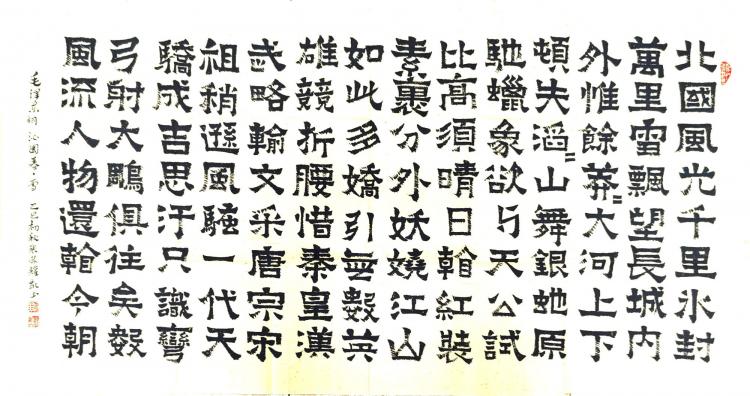 北國風光千里氷封
萬里雪飄望長城内
外惟餘莽〻大河上下
頓失滔〻山舞銀虵原
馳蠟象欲与天公試
比高須晴日看紅裝
素裹分外妖嬈江山
如此多嬌引無數英
雄競折腰惜秦皇漢
武略輸文采唐宗宋
祖稍遜風騷一代天
驕成吉思汗只識彎
弓射大鵰俱往矣數
風流人物還看今朝
毛澤東詞 沁園春·雪 乙巳初秋